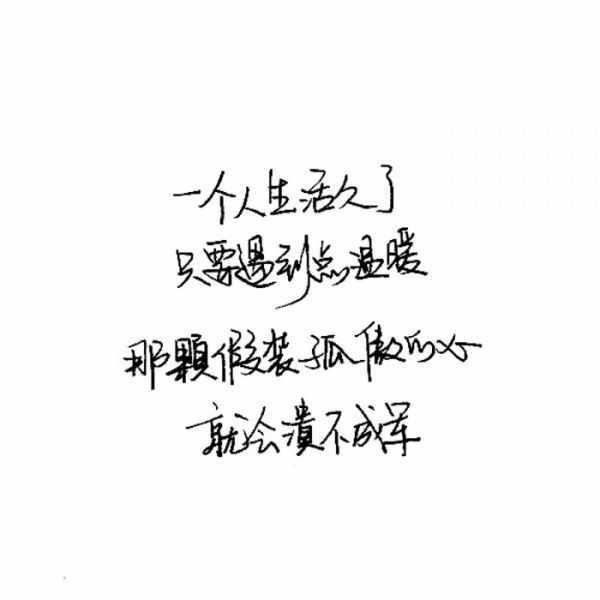 一个人生活久了
只要遇到点温暖
那颗假装孤傲的心
就会溃不成军